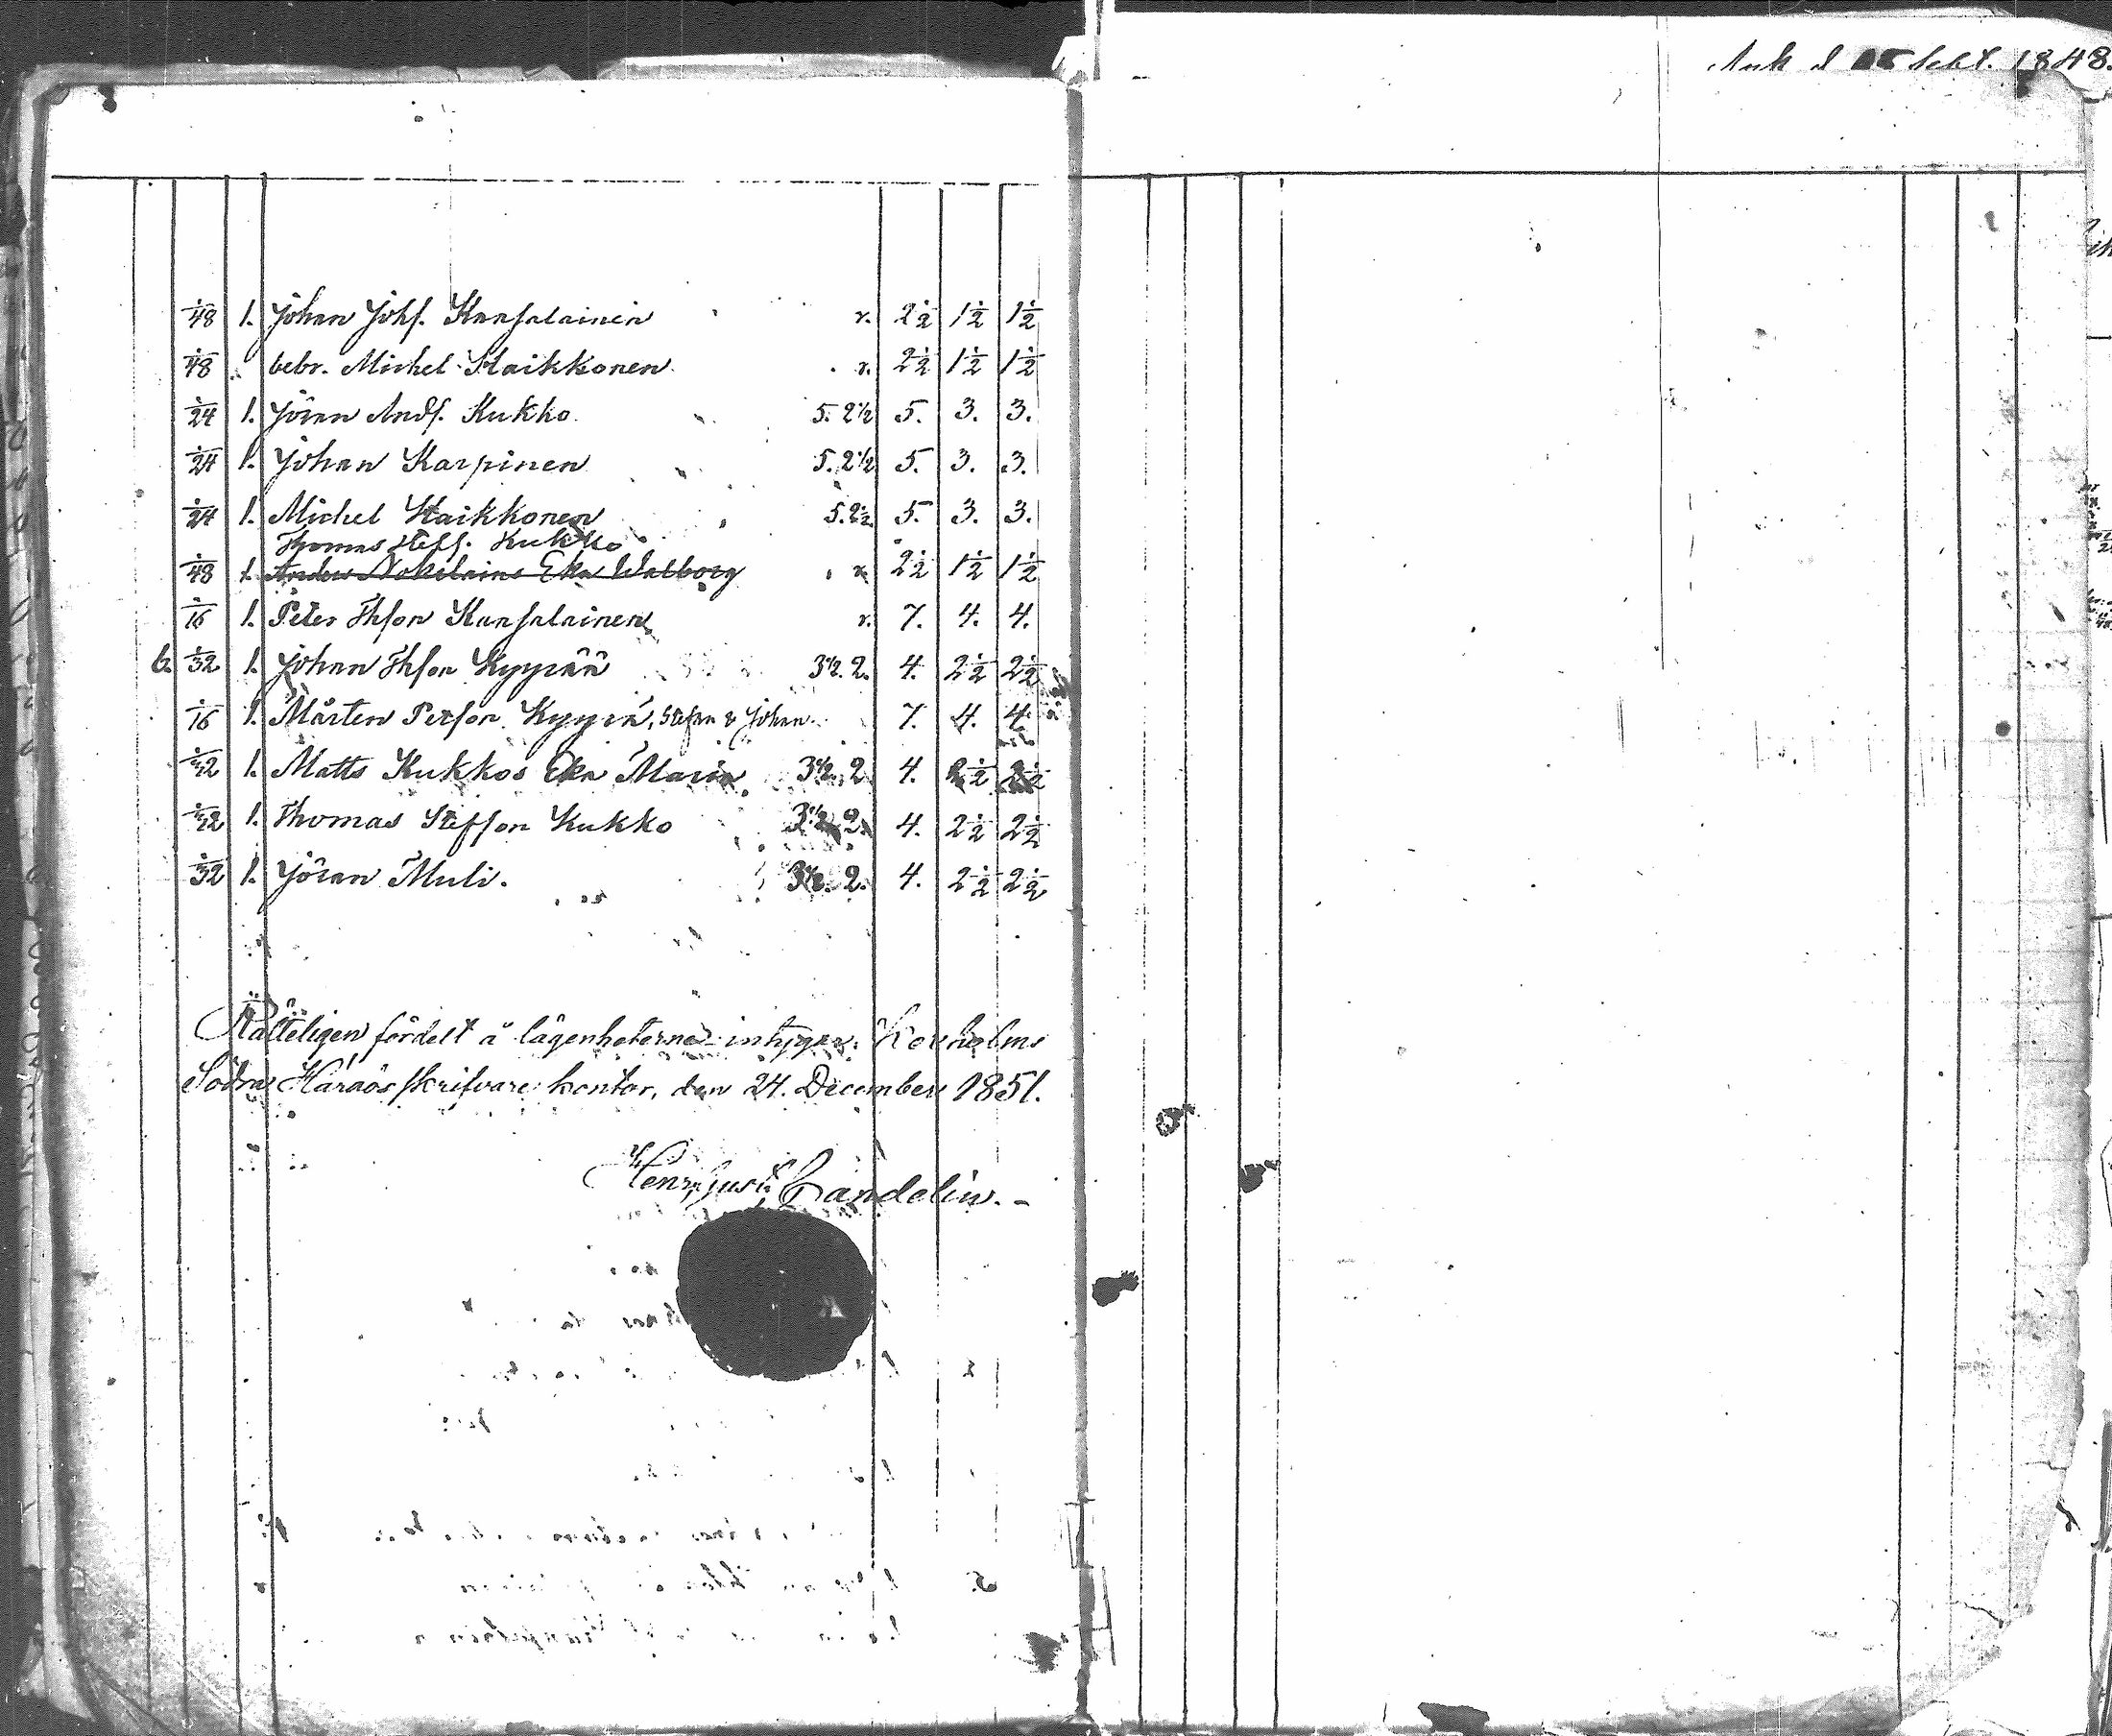 1/48 1. Johan Johs. Kansalainen r. 2 1/2 1 1/2 1 1/2
1/48 " bebr. Michel Haikkonen r. 2 1/2 1 1/2 1 1/2
1/24 1. Jöran Ands. Kukko 5. 2 1/2 5. 3. 3.
1/24 1. Johan Karpinen 5. 2 1/2 5. 3. 3.
1/24 1. Michel Haikkonen 5. 2 1/2 5. 3. 3.
Thomas Steffs. Kukko
1/48 1. Anders Nokelains Eka Walborg r. 2 1/2 1 1/2 1 1/2
1/16 1. Peter Thsson Kansalainen r. 7. 4. 4.
6. 1/32 1. Johan Thsson Kyyrää 3 1/2. 2. 4. 2 1/2 2 1/2
1/16 1. Mårten Persson Kyyrä, Stefan & Johan 7. 4. 4.
1/32 1. Matts Kukkos Eka Maria 3 1/2. 2. 4. 2 1/2 2 1/2
1/32 1. Thomas Steffson Kukko 3 1/2. 2. 4. 2 1/2 2 1/2
1/32 1. Jöran Muli. 3 1/2. 2. 4. 2 1/2 2 1/2
Rätteligen fördelt å lägenheterne intygar. Kexholms
Södra Häradsskrifvare kontor, den 24. December 1851.
Henr. Gust. Candelin.
Ank d Sept. 1848.